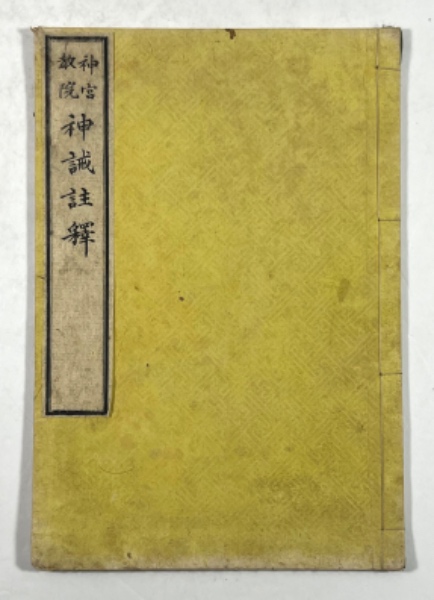 神宮
教院
神誡註釋